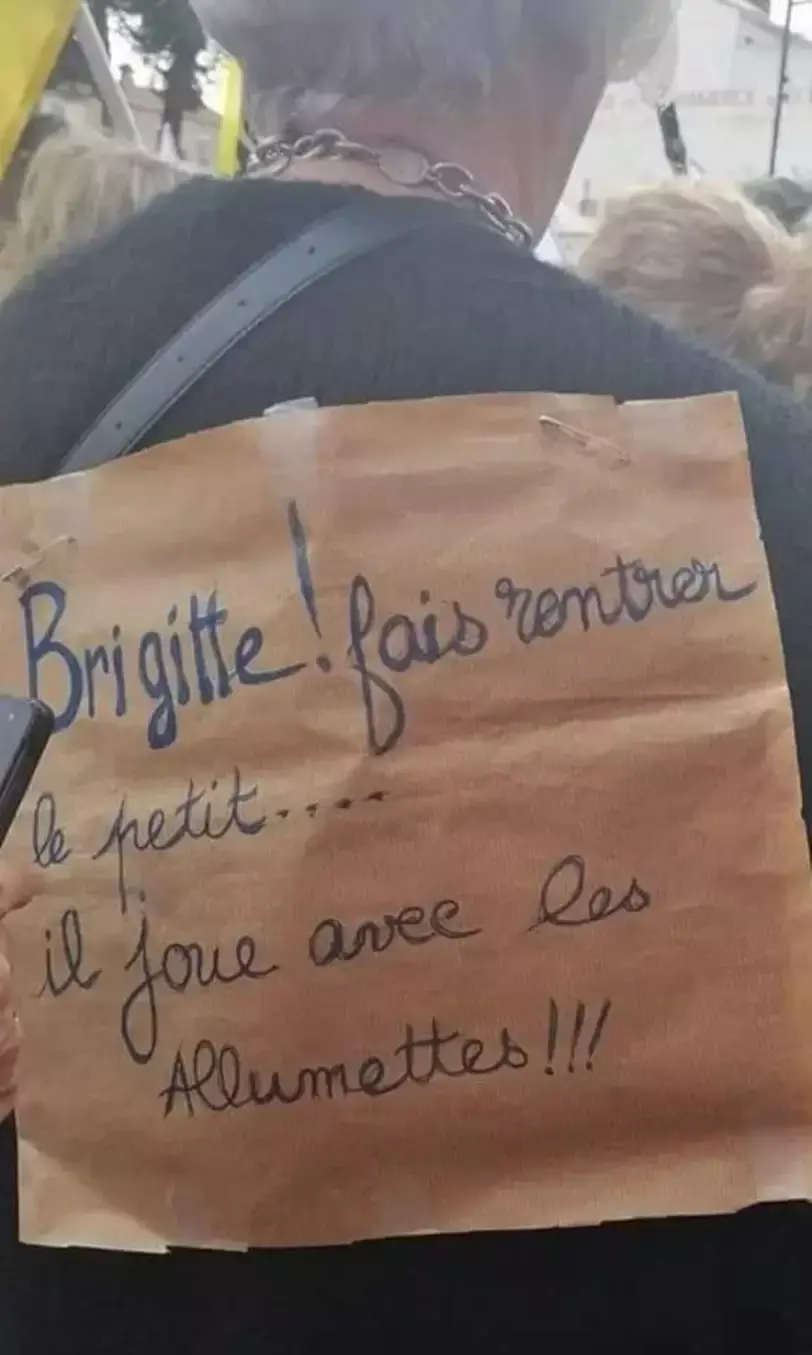 Brigitte! fais rentrer
le petit....
il joue avec les
Allumettes!!!